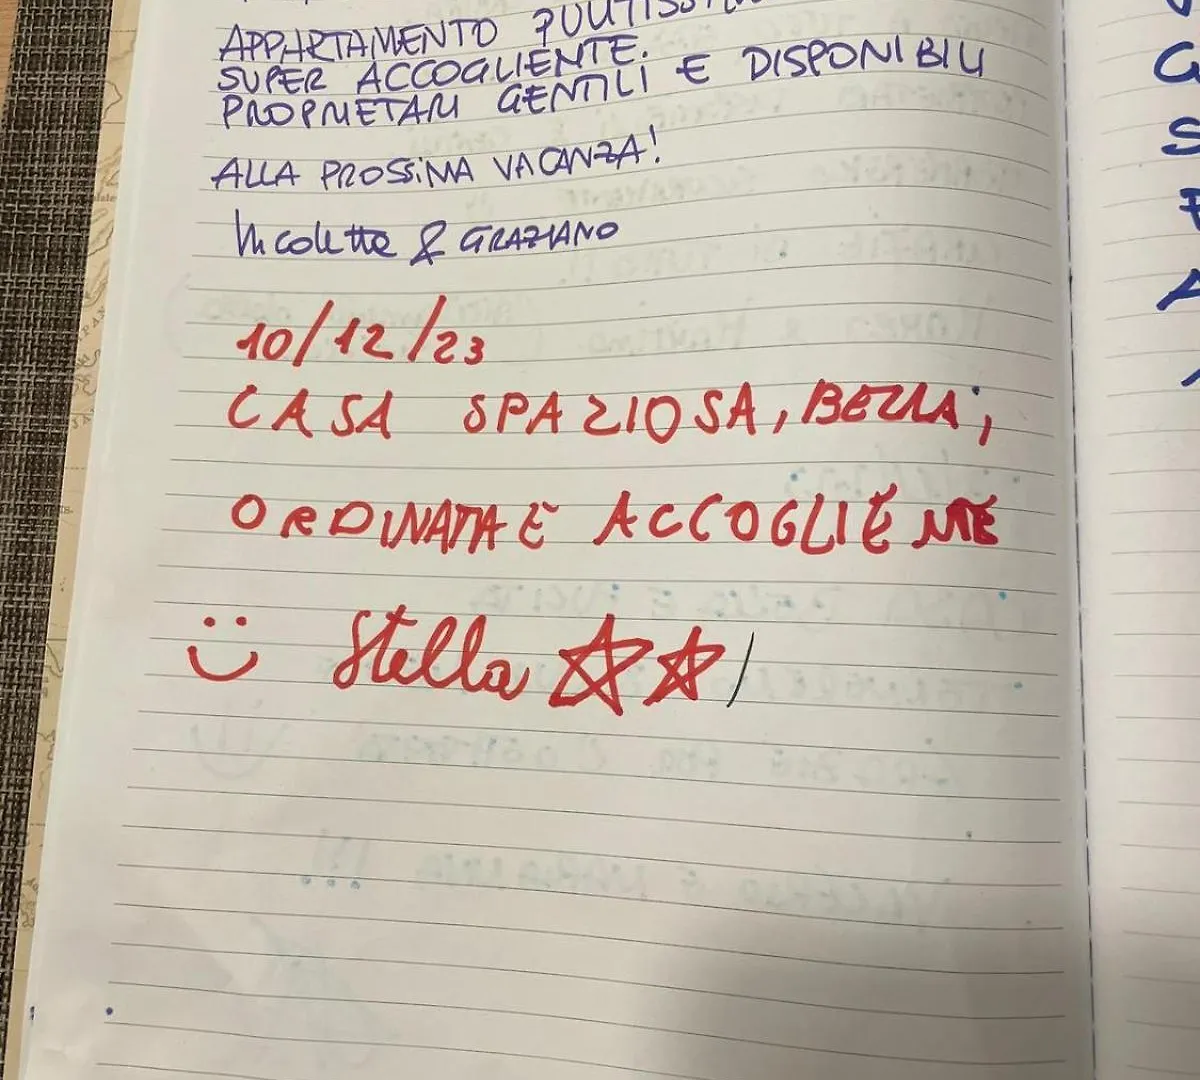 APPARTAMENTO
SUPER ACCOGLIENTE.
PROPRIETARI GENTILI E DISPONIBILI
ALLA PROSSIMA VACANZA!
Nicoletta & GRAZIANO
10/12/23
CASA SPAZIOSA, BELLA,
ORDINATA E ACCOGLIENTE
Stella